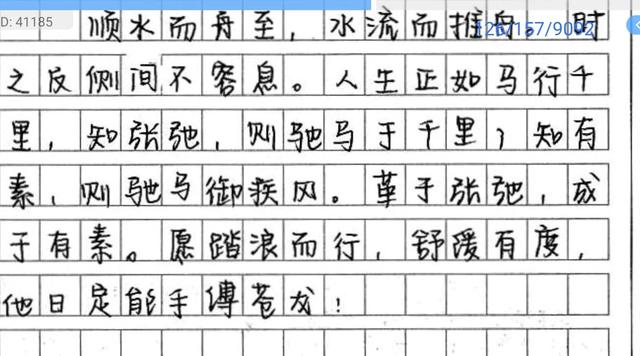 ID: 41185
126/157/9002
顺水而舟至，水流而推舟。时
之反侧间不容息。人生正如马行千
里，知张弛，则驰马于千里；知有
素，则驰马御疾风。革于张弛，成
于有素。愿踏浪而行，舒缓有度，
他日定能手缚苍龙！